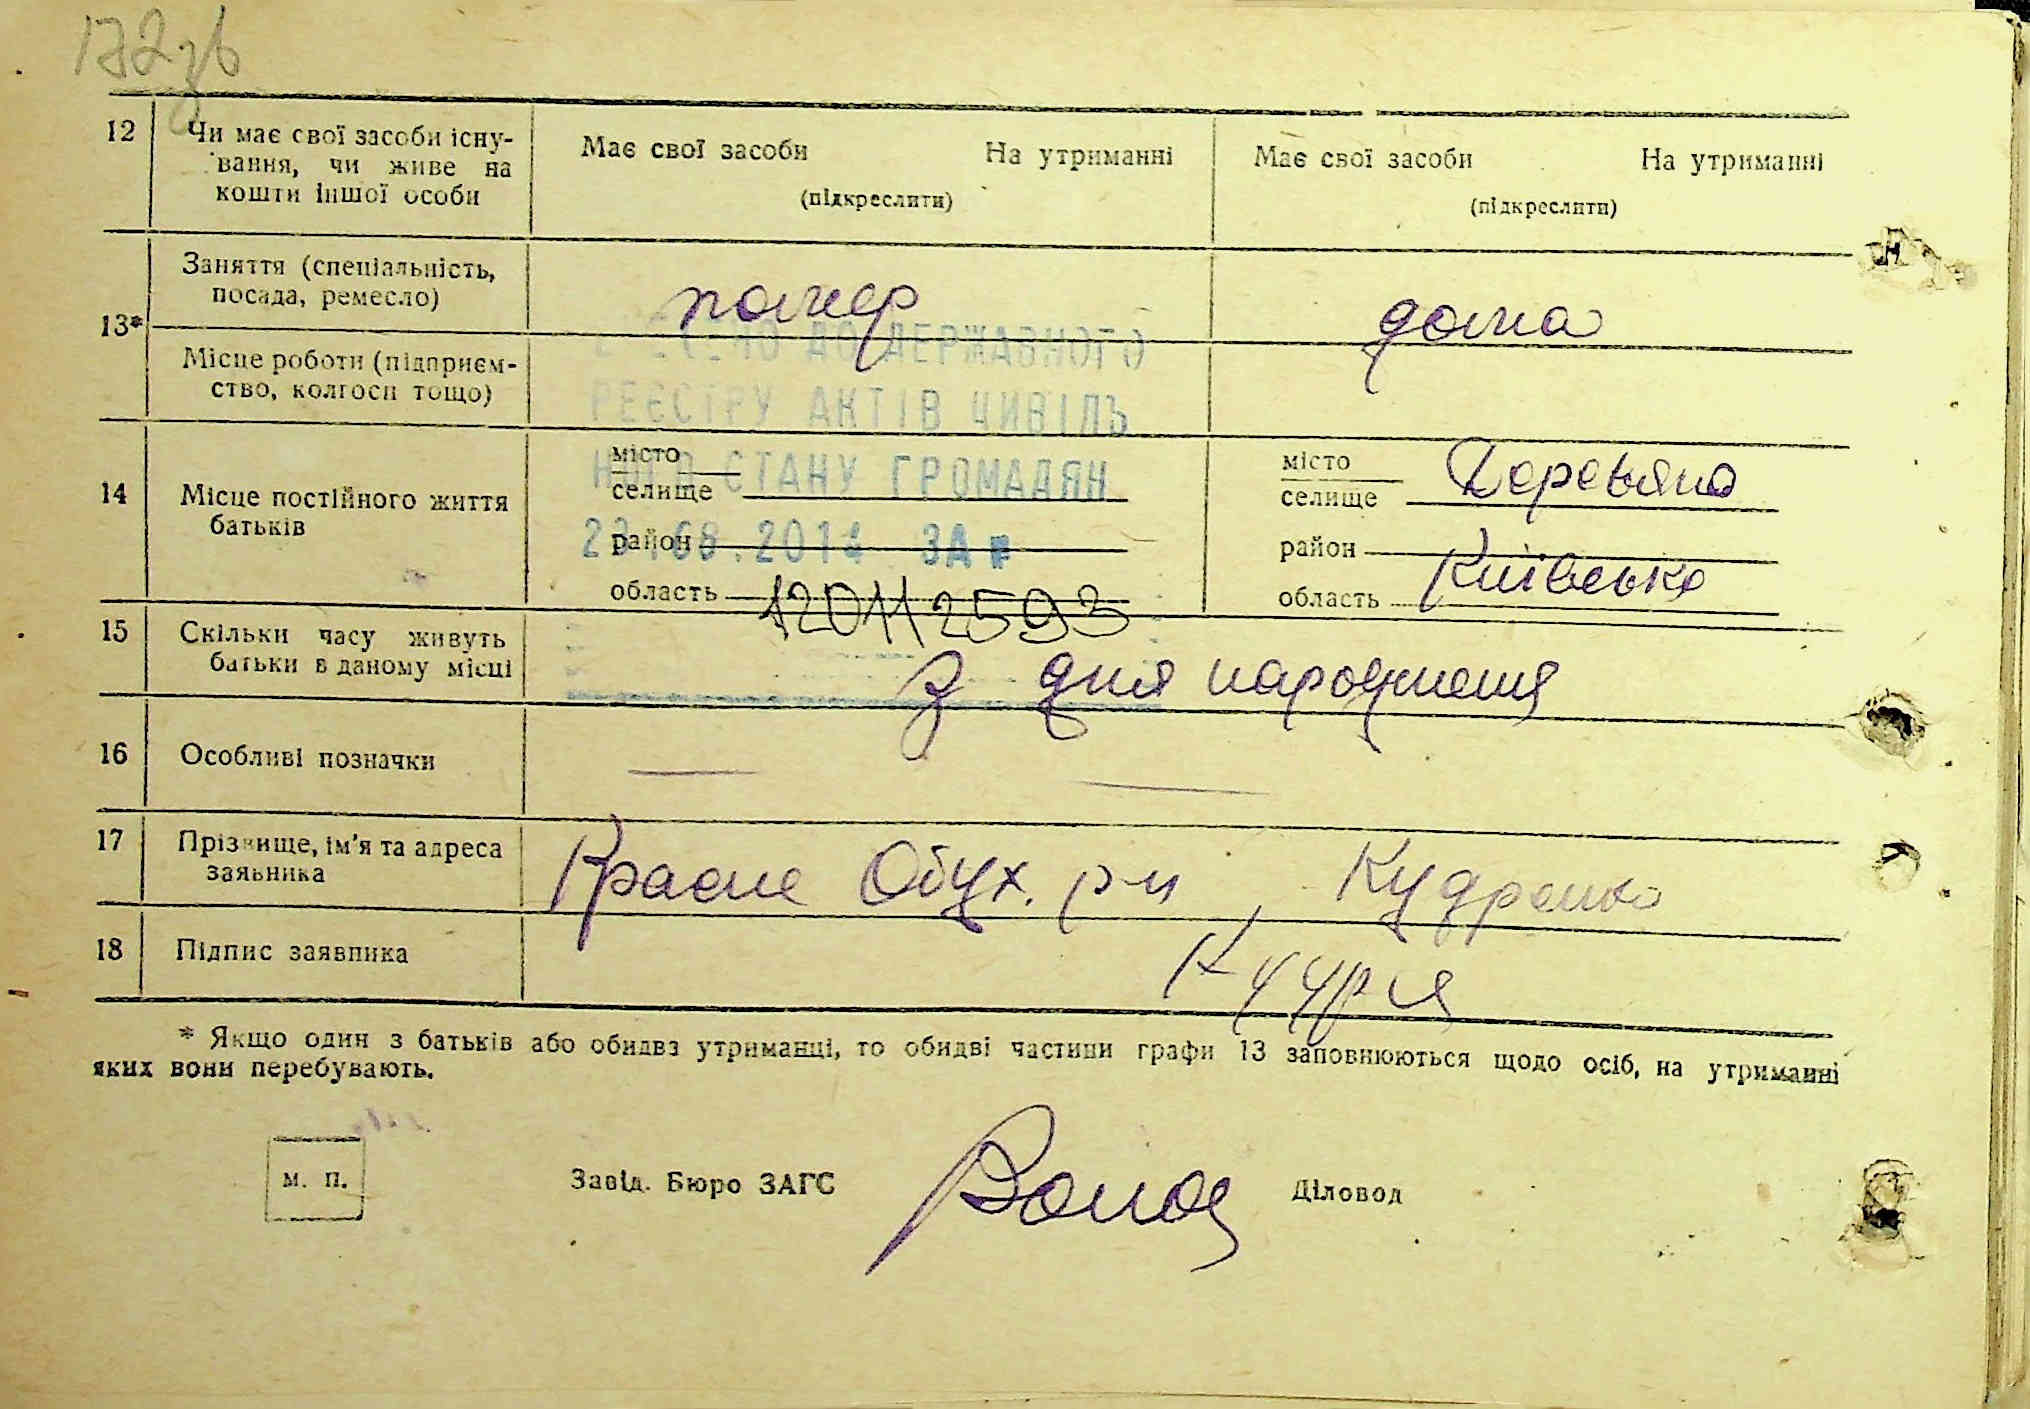 172зв
12 Чи має свої засоби існу- Має свої засоби На утриманні Має свої засоби На утриманні
вання, чи живе на (підкреслити) (підкреслити)
кошти іншої особи
Заняття (спеціальність, дома
посада, ремесло)
13*
ДО ДЕРЖАВНОГО
Місце роботи (підприєм-
ство, колгосп тощо)
РЕЄСТРУ АКТІВ ЦИВІЛЬ
НОГО СТАНУ ГРОМАДЯН
місто місто
14 Місце постійного життя селище селище
батьків район район
.2014 ЗА №
область 120112593 область Київська
15 Скільки часу живуть З дня народження
батьки в даному місці
16 Особливі позначки — —
17 Прізвище, ім'я та адреса Красне Обух. р-н, Кудренко
заявника
18 Підпис заявника
* Якщо один з батьків або обидва утриманці, то обидві частини графи 13 заповнюються щодо осіб, на утриманні
яких вони перебувають.
м. п. Завід. Бюро ЗАГС Діловод